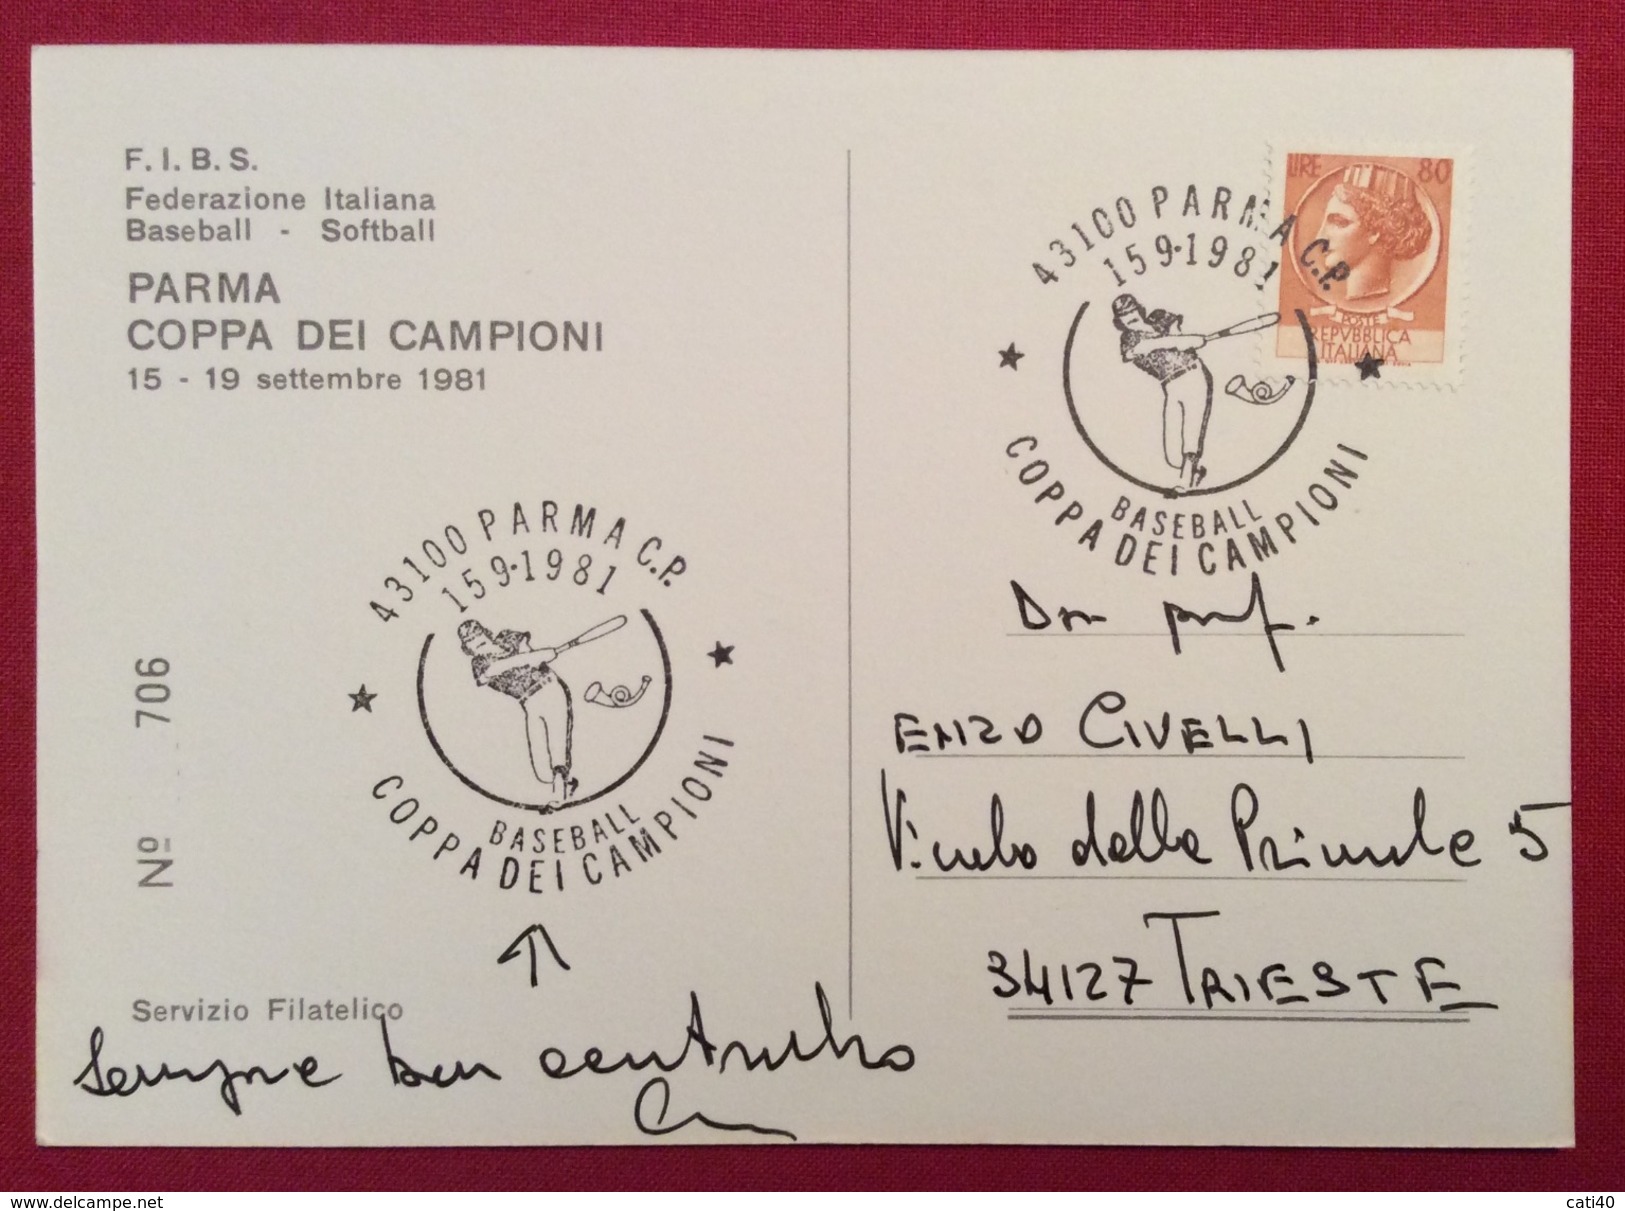 F. I. B. S.
Federazione Italiana
Baseball - Softball
PARMA
COPPA DEI CAMPIONI
15 - 19 settembre 1981
43100 PARMA C.P.
15 9·1981
BASEBALL
COPPA DEI CAMPIONI
Nº 706
Servizio Filatelico
Sempre ben
LIRE 80
POSTE
REPVBBLICA
ITALIANA
43100 PARMA C.P.
15 9·1981
BASEBALL
COPPA DEI CAMPIONI
prof.
ENZO CIVELLI
Vicolo delle Primule 5
34127 TRIESTE
delcampe.net
cati40